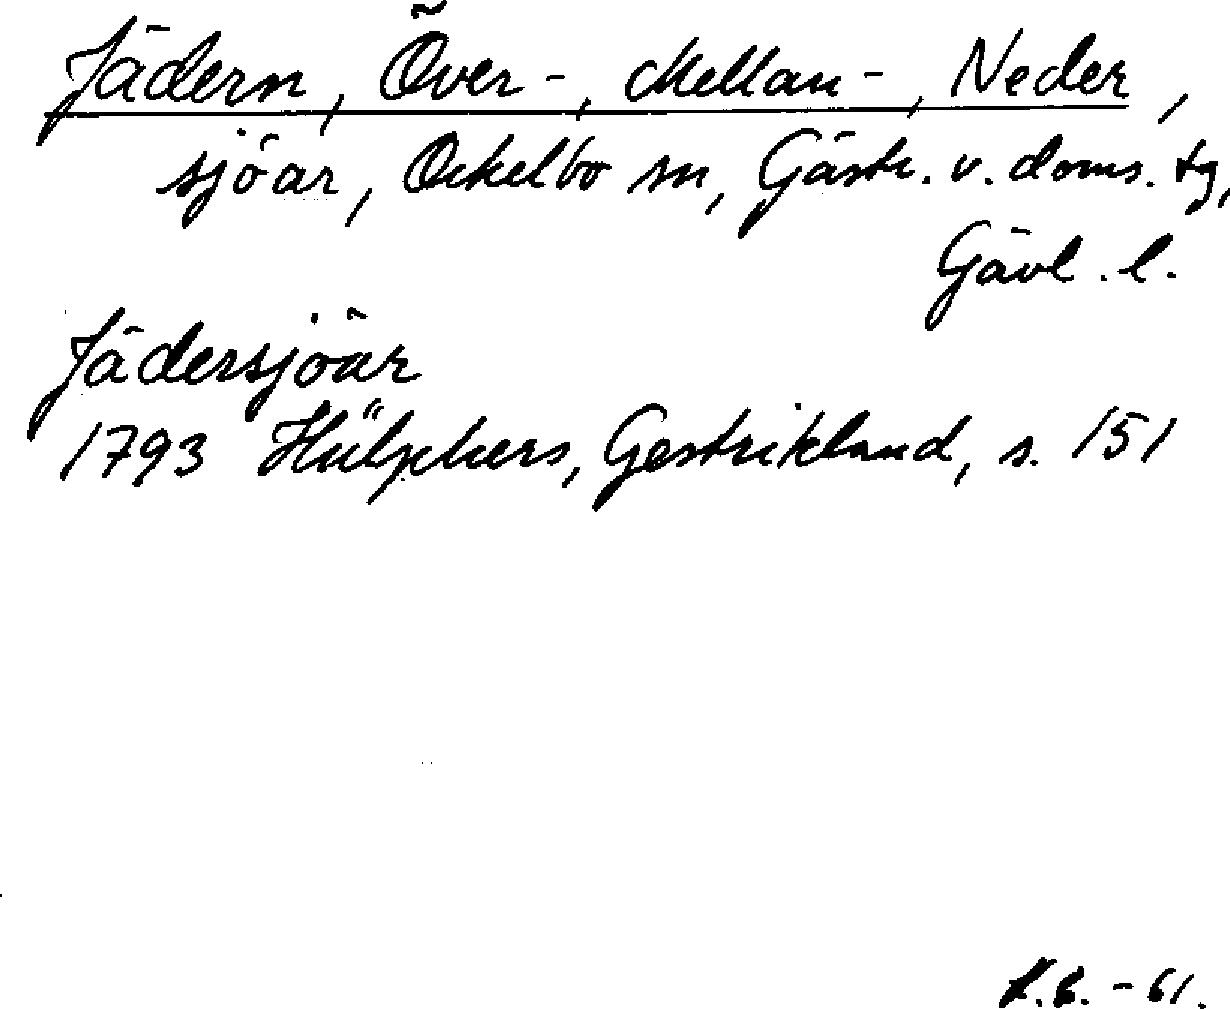 Jädern, Över-, Mellan-, Neder,
sjöar, Ockelbo sn, Gästr. v. doms. tg,
Gävl. l.
Jädersjöar
1793 Hülphers, Gestrikland, s. 151
-61.